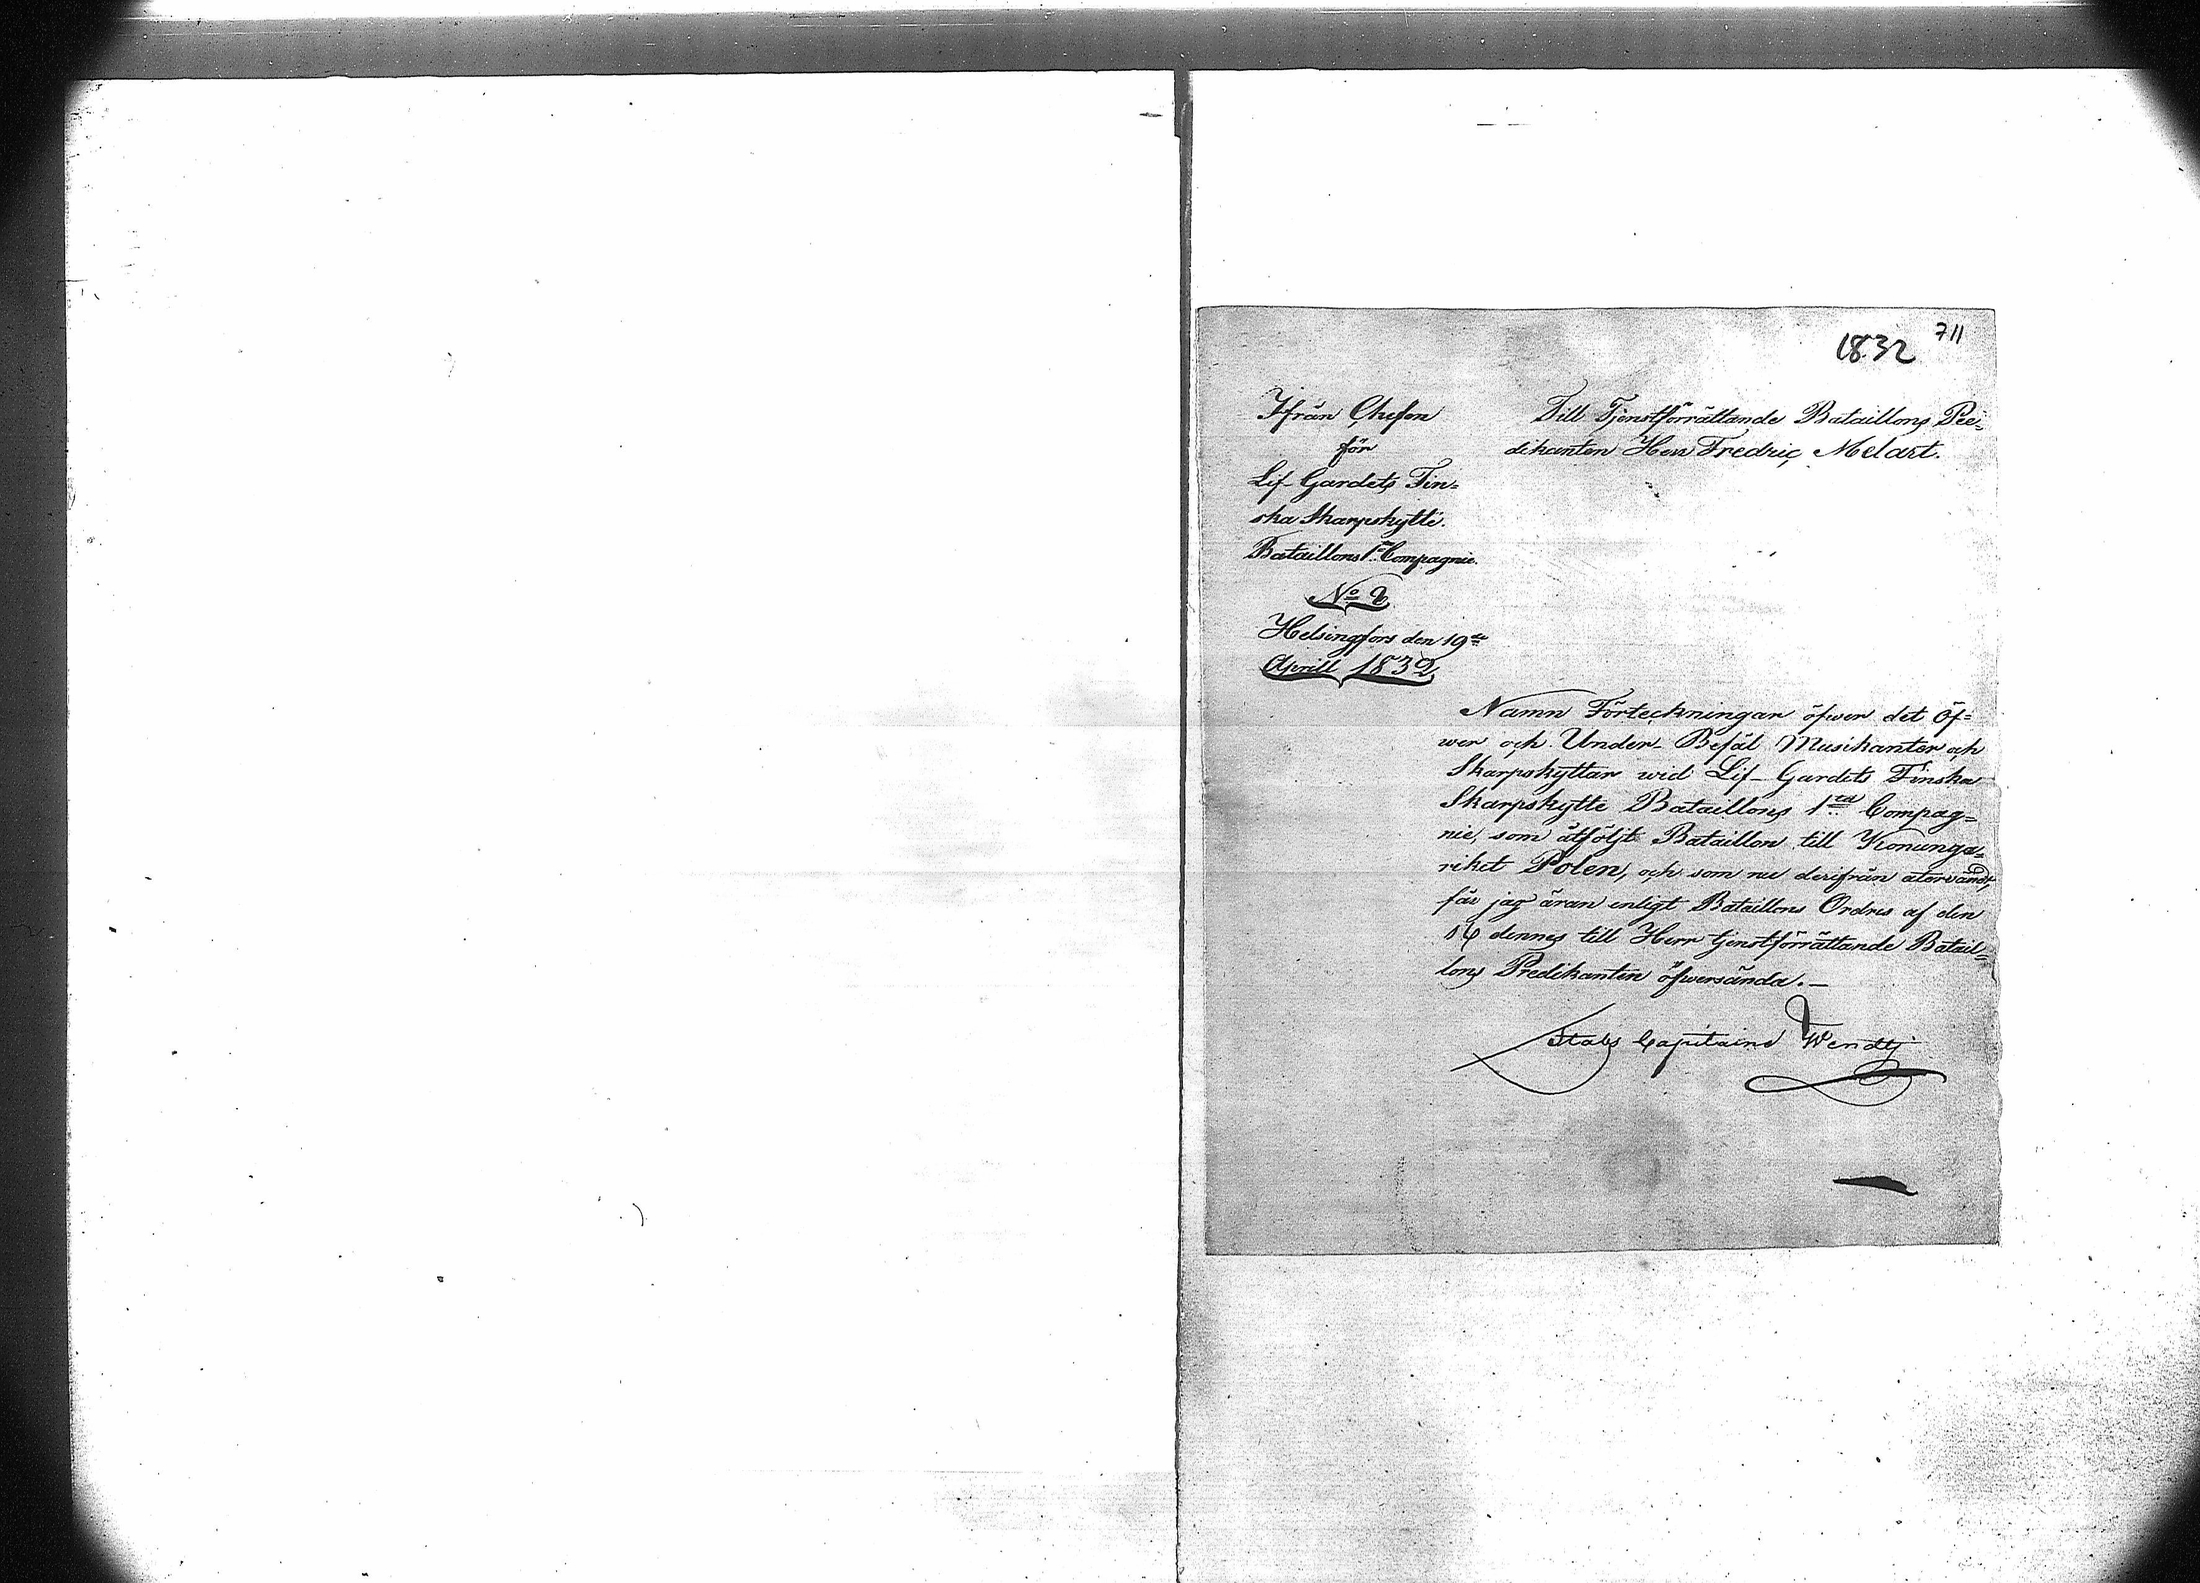 711
1832
Ifrån Chefen
för
Lif-Gardets Fin=
ska Skarpskytte.
Bataillons 1sta Compagnie.
No 2
Helsingfors den 19de
Aprill 1832
Till Tjenstförrättande Bataillons Pre=
dikanten Herr Fredric Melart.
Namn Förteckningar öfwer det Öf=
wer och Under-Befäl Musikanter och
Skarpskyttar wid Lif-Gardets Finska
Skarpskytte Bataillons 1sta Compag=
nie, som åtföljt Bataillon till Konunga=
riket Polen, och som nu derifrån återvändt,
får jag äran enligt Bataillons Ordres af den
16 dennes till Herr tjenstförrättande Batail=
lons Predikanten öfwersända.—
Stabs Capitaine Wendt